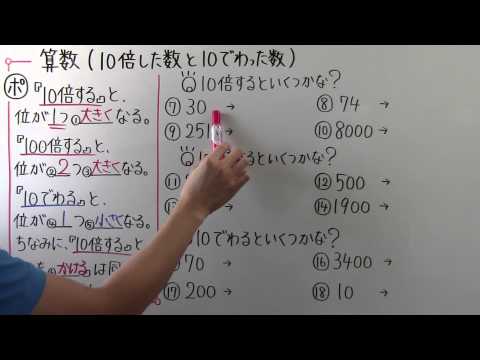 算数(10倍した数と10でわった数)
ポ
『10倍する』と、
位が1つ大きくなる。
『100倍する』と、
位が2つ大きくなる。
『10でわる』と、
位が1つ小さくなる。
ちなみに、『10倍する』と
かける は同
Q 10倍するといくつかな?
⑦ 30 →
⑧ 74 →
⑨ 251 →
⑩ 8000 →
るといくつかな?
⑫ 500 →
⑭ 1900 →
10でわるといくつかな?
70 →
⑯ 3400 →
⑰ 200 →
⑱ 10 →